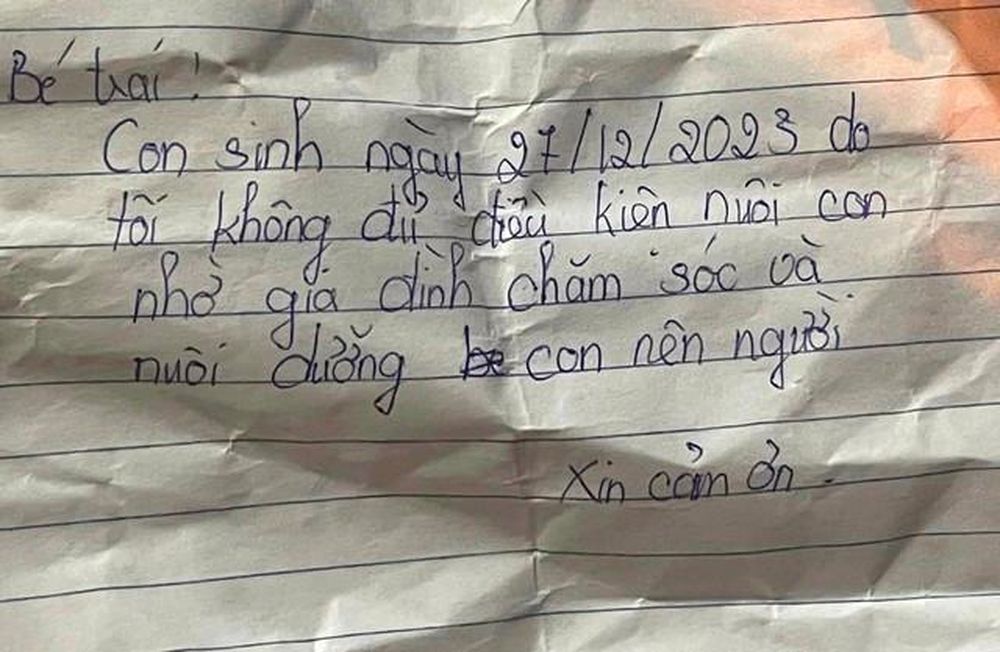 Bé trai!
Con sinh ngày 27/12/2023 do
tôi không đủ điều kiên nuôi con
nhờ gia đình chăm sóc và
nuôi dưỡng be con nên người.
Xin cảm ơn.